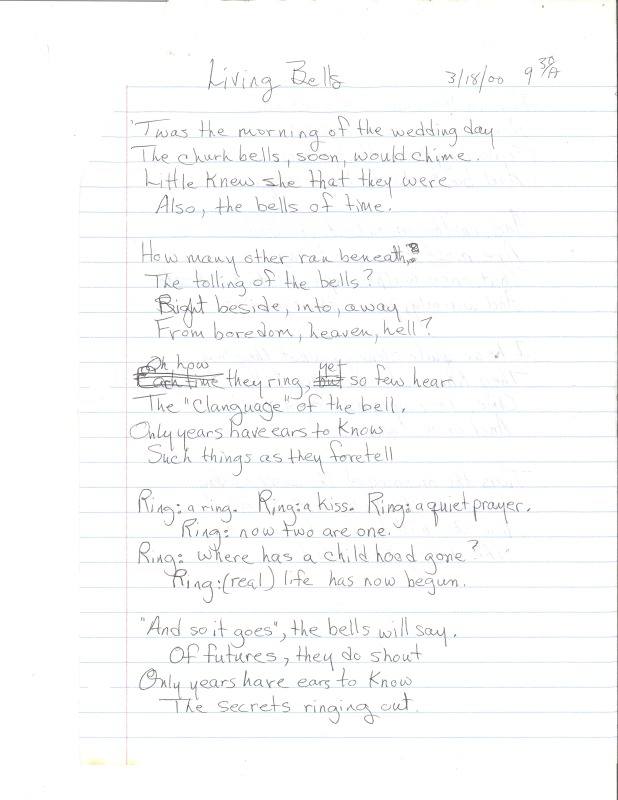 Living Bells 3/18/00 9 30/A
'Twas the morning of the wedding day
The churh bells, soon, would chime.
Little knew she that they were
Also, the bells of time.
How many other ran beneath,
The tolling of the bells?
Right beside, into, away
From boredom, heaven, hell?
Oh how yet
Each time they ring, but so few hear
The "Clanguage" of the bell.
Only years have ears to know
Such things as they foretell
Ring: a ring. Ring: a kiss. Ring: a quiet prayer.
Ring: now two are one.
Ring: where has a child hood gone?
Ring: (real) life has now begun.
"And so it goes", the bells will say.
Of futures, they do shout
Only years have ears to know
The secrets ringing out.